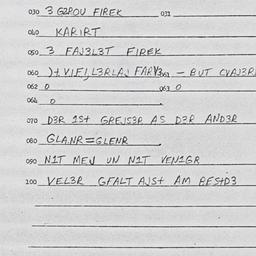 030 3 GZROU FIREK 031
040 KARIRT
050 3 FAJ3L3T FIREK
060 - BUT
062 0 063 0
064 0
070 D3R 1St GREJS3R AS D3R AND3R
080 GLANR=GLENR
090 N1T MEJ UN N1T VEN1GR
100 VEL3R GFALT AJSt AM BEStD3